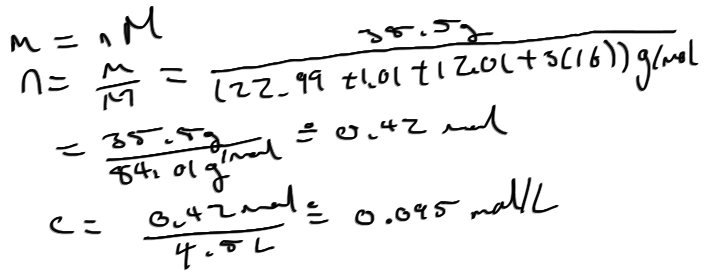 m = nM
n = m/M = 35.5g/(22.99 + 1.01 + 12.01 + 3(16)) g/mol
= 35.5g/84.01 g/mol ≐ 0.42 mol
c = 0.42 mol/4.5 L ≐ 0.095 mol/L